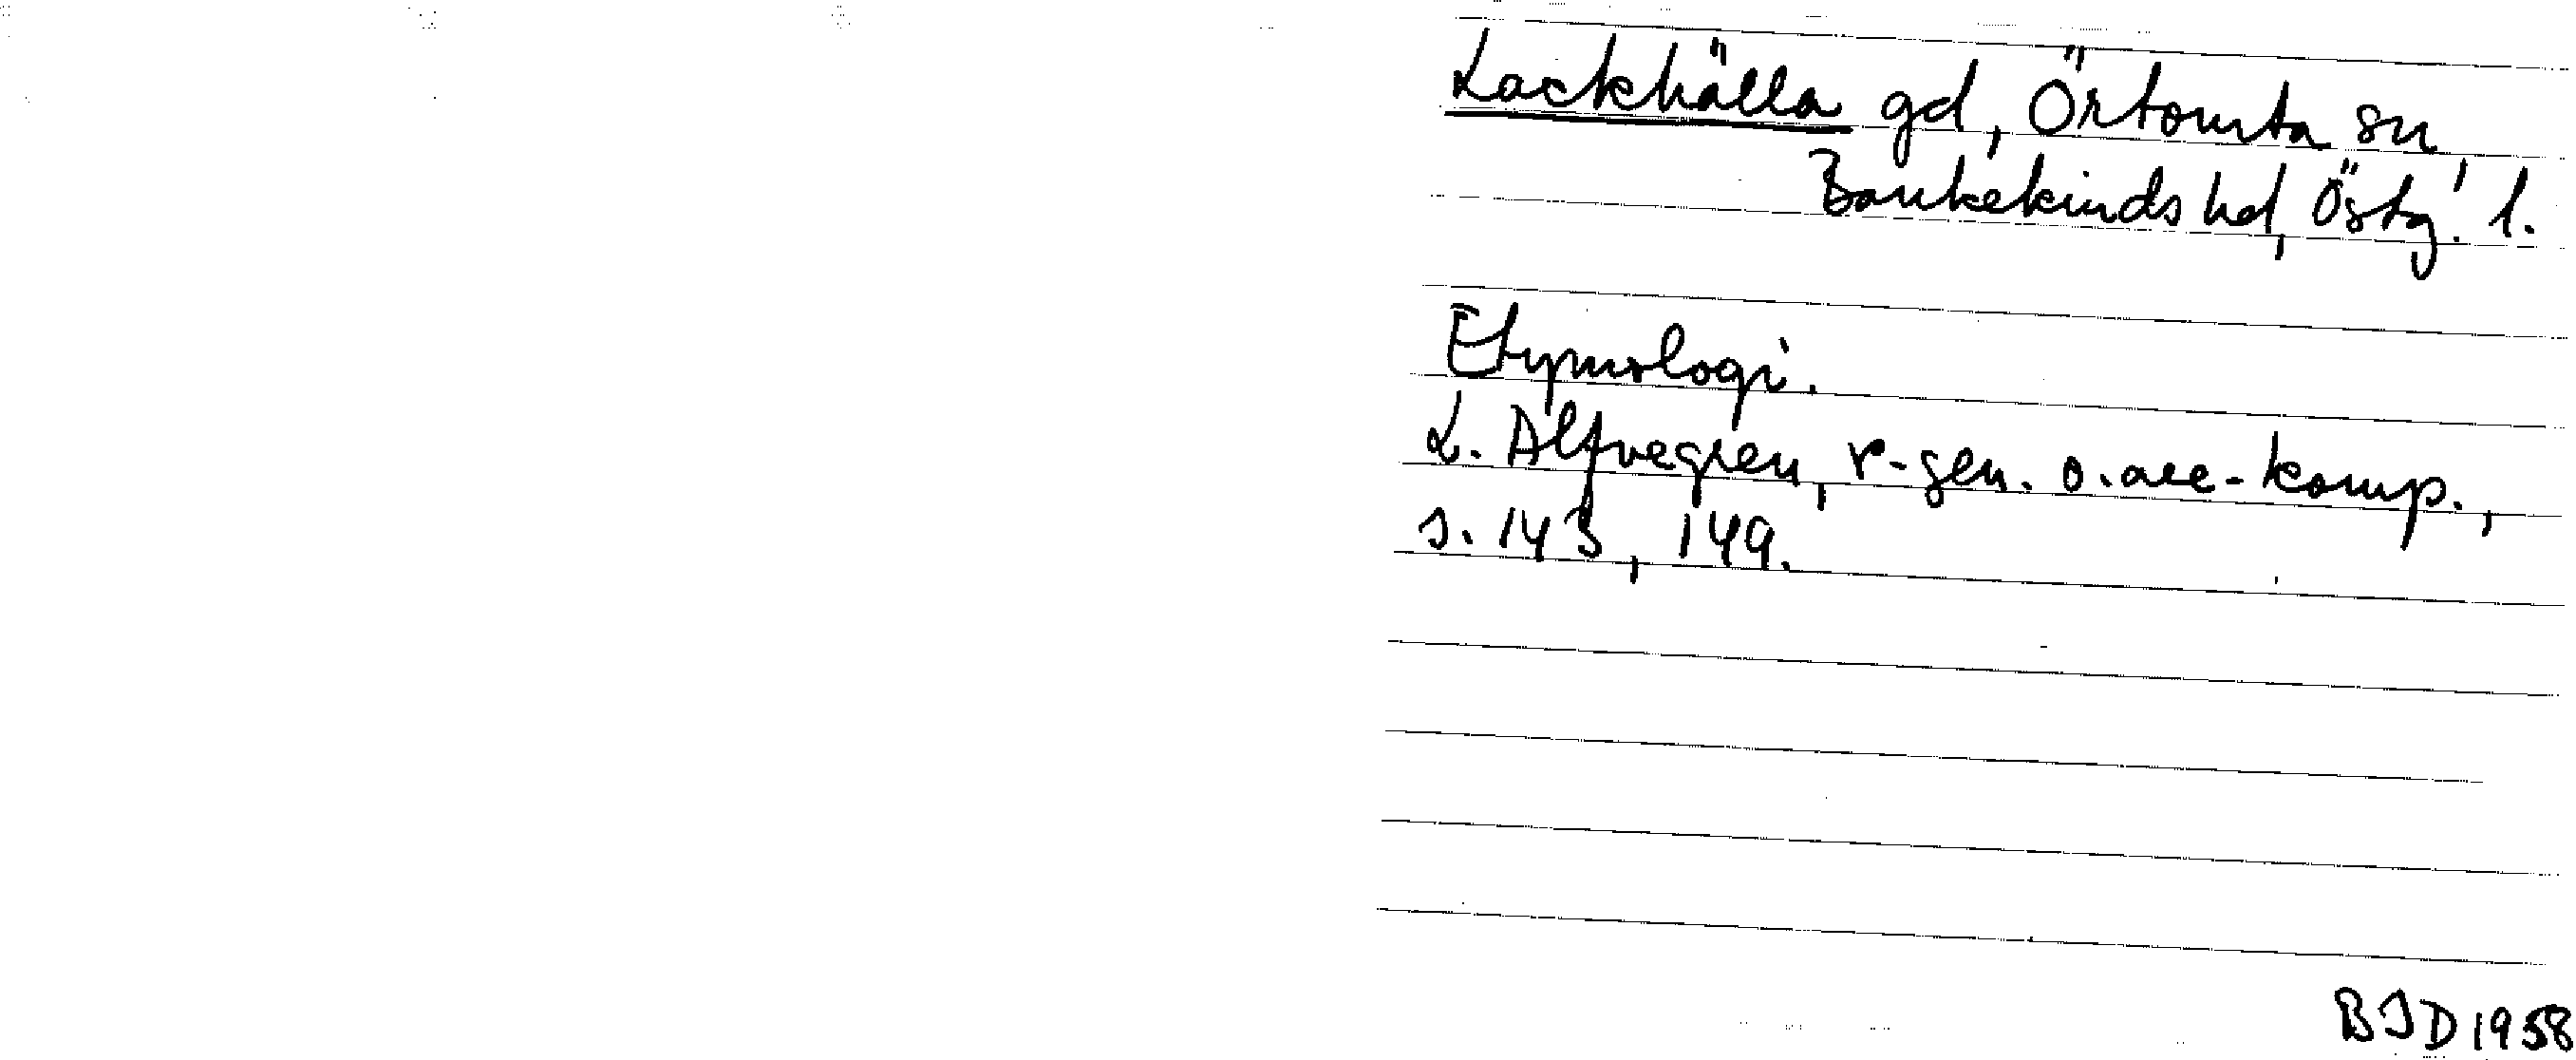 Lackhälla gd, Örtomta sn,
Bankekinds hd, Östg. l.
Etymologi.
L. Alfvegren, r-gen. o. are-komp.,
s. 143, 149.
BJD 1958